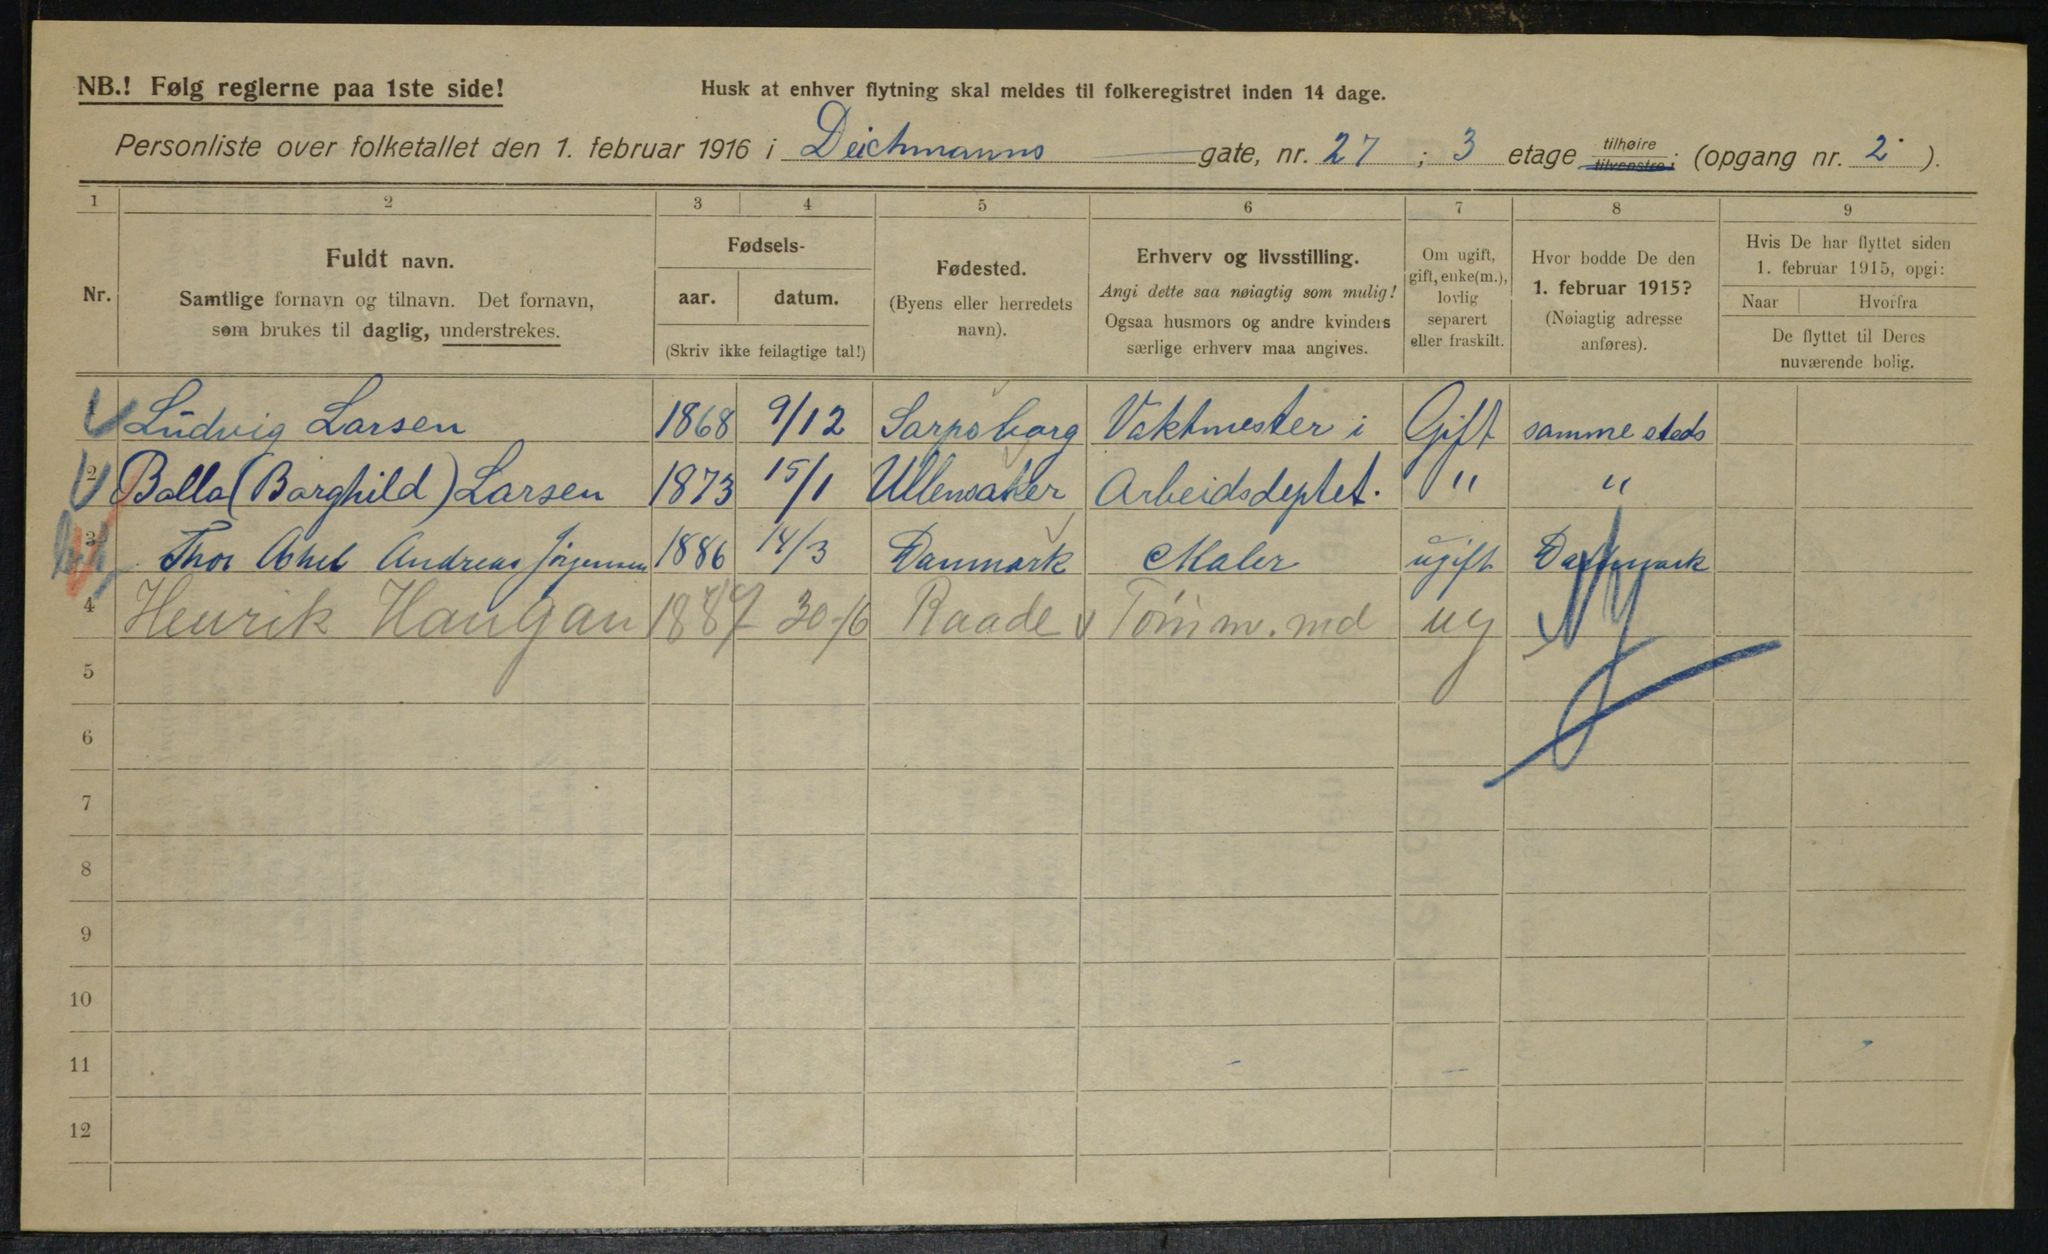 NB.! Følg reglerne paa 1ste side!
Husk at enhver flytning skal meldes til folkeregistret inden 14 dage.
Personliste over folketallet den 1. februar 1916 i Deichmanns gate, nr. 27 ; 3 etage tilhøire tilvenstre i (opgang nr. 2 ).
1 2 3 4 5 6 7 8 9
Nr.
Fuldt navn.
Samtlige fornavn og tilnavn. Det fornavn,
som brukes til daglig, understrekes.
Fødsels-
aar. datum.
(Skriv ikke feilagtige tal!)
Fødested.
(Byens eller herredets
navn).
Erhverv og livsstilling.
Angi dette saa nøiagtig som mulig!
Ogsaa husmors og andre kvinders
særlige erhverv maa angives.
Om ugift,
gift, enke(m.),
lovlig
separert
eller fraskilt.
Hvor bodde De den
1. februar 1915?
(Nøiagtig adresse
anføres).
Hvis De har flyttet siden
1. februar 1915, opgi:
Naar Hvorfra
De flyttet til Deres
nuværende bolig.
Ludvig Larsen 1868 9/12 Sarpsborg Vaktmester i Gift samme steds
2 Balla (Borghild) Larsen 1873 15/1 Ullensaker Arbeidsdeptet. " "
3 Thor Axhel Andreas Jörgensen 1886 14/3 Danmark Maler ugift Danmark
4 Henrik Haugan 30-6 Raade Tömm. md ug
5
6
7
8
9
10
11
12